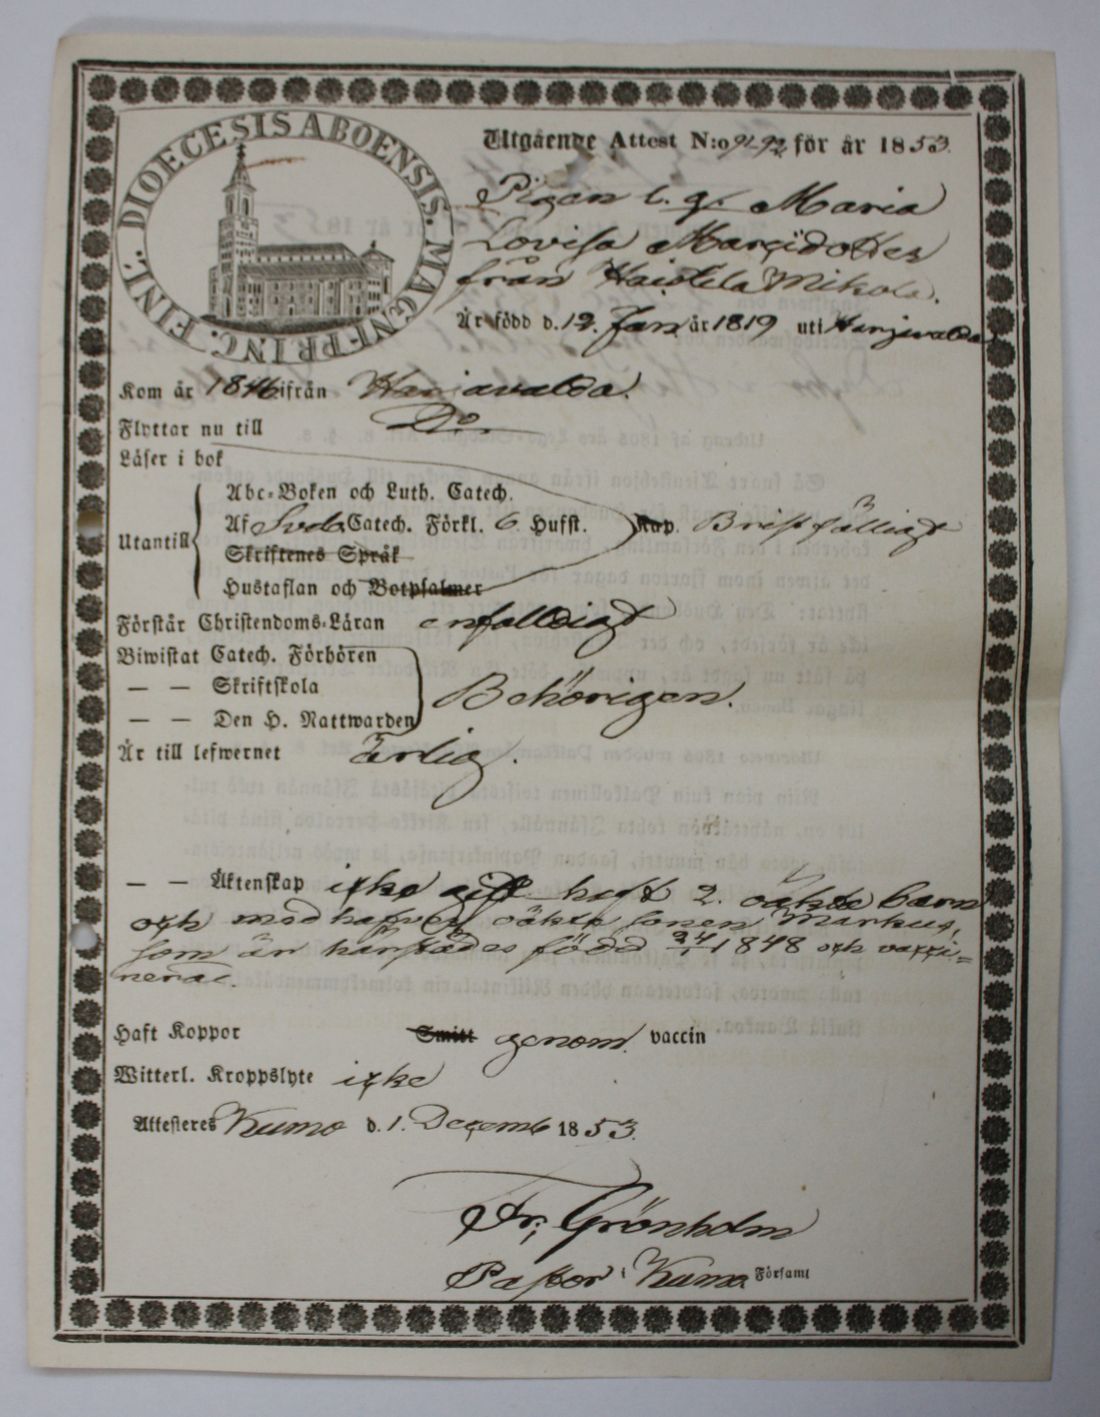 DIOECESIS ABOENSIS. MAGNI-PRINC. FINL.
Utgående Attest N:o 91-92 för år 1853.
Pigan l. q. Maria
Lovisa Marcidotter
från Haistila Mikola.
Är född d. 12. Jan. år 1819 uti Harjavalda
Kom år 1846 ifrån Harjavalda.
Flyttar nu till Do.
Läser i bok
Utantill
Abc-Boken och Luth. Catech.
Af Sveb. Catech. Förkl. 6 Hufst. Kap. Bristfälligt
Skriftenes Språk
Hustaflan och Botpsalmer
Förstår Christendoms-Läran enfalldigt
Biwistat Catech. Förhören
— — Skriftskola Behörigen.
— — Den H. Nattwarden
Är till lefwernet Ärlig.
— — Äktenskap icke gift haft 2. oäkta barn
och medhafver oäkta sonen Markus,
som är härstädes född 24/4 1848 och vacci=
nerad.
Haft Koppor Smitt genom vaccin
Witterl. Kroppslyte icke
Attesteres Kumo d. 1. Decemb 1853.
Fr. Grönholm
Pastor i Kumo Församl